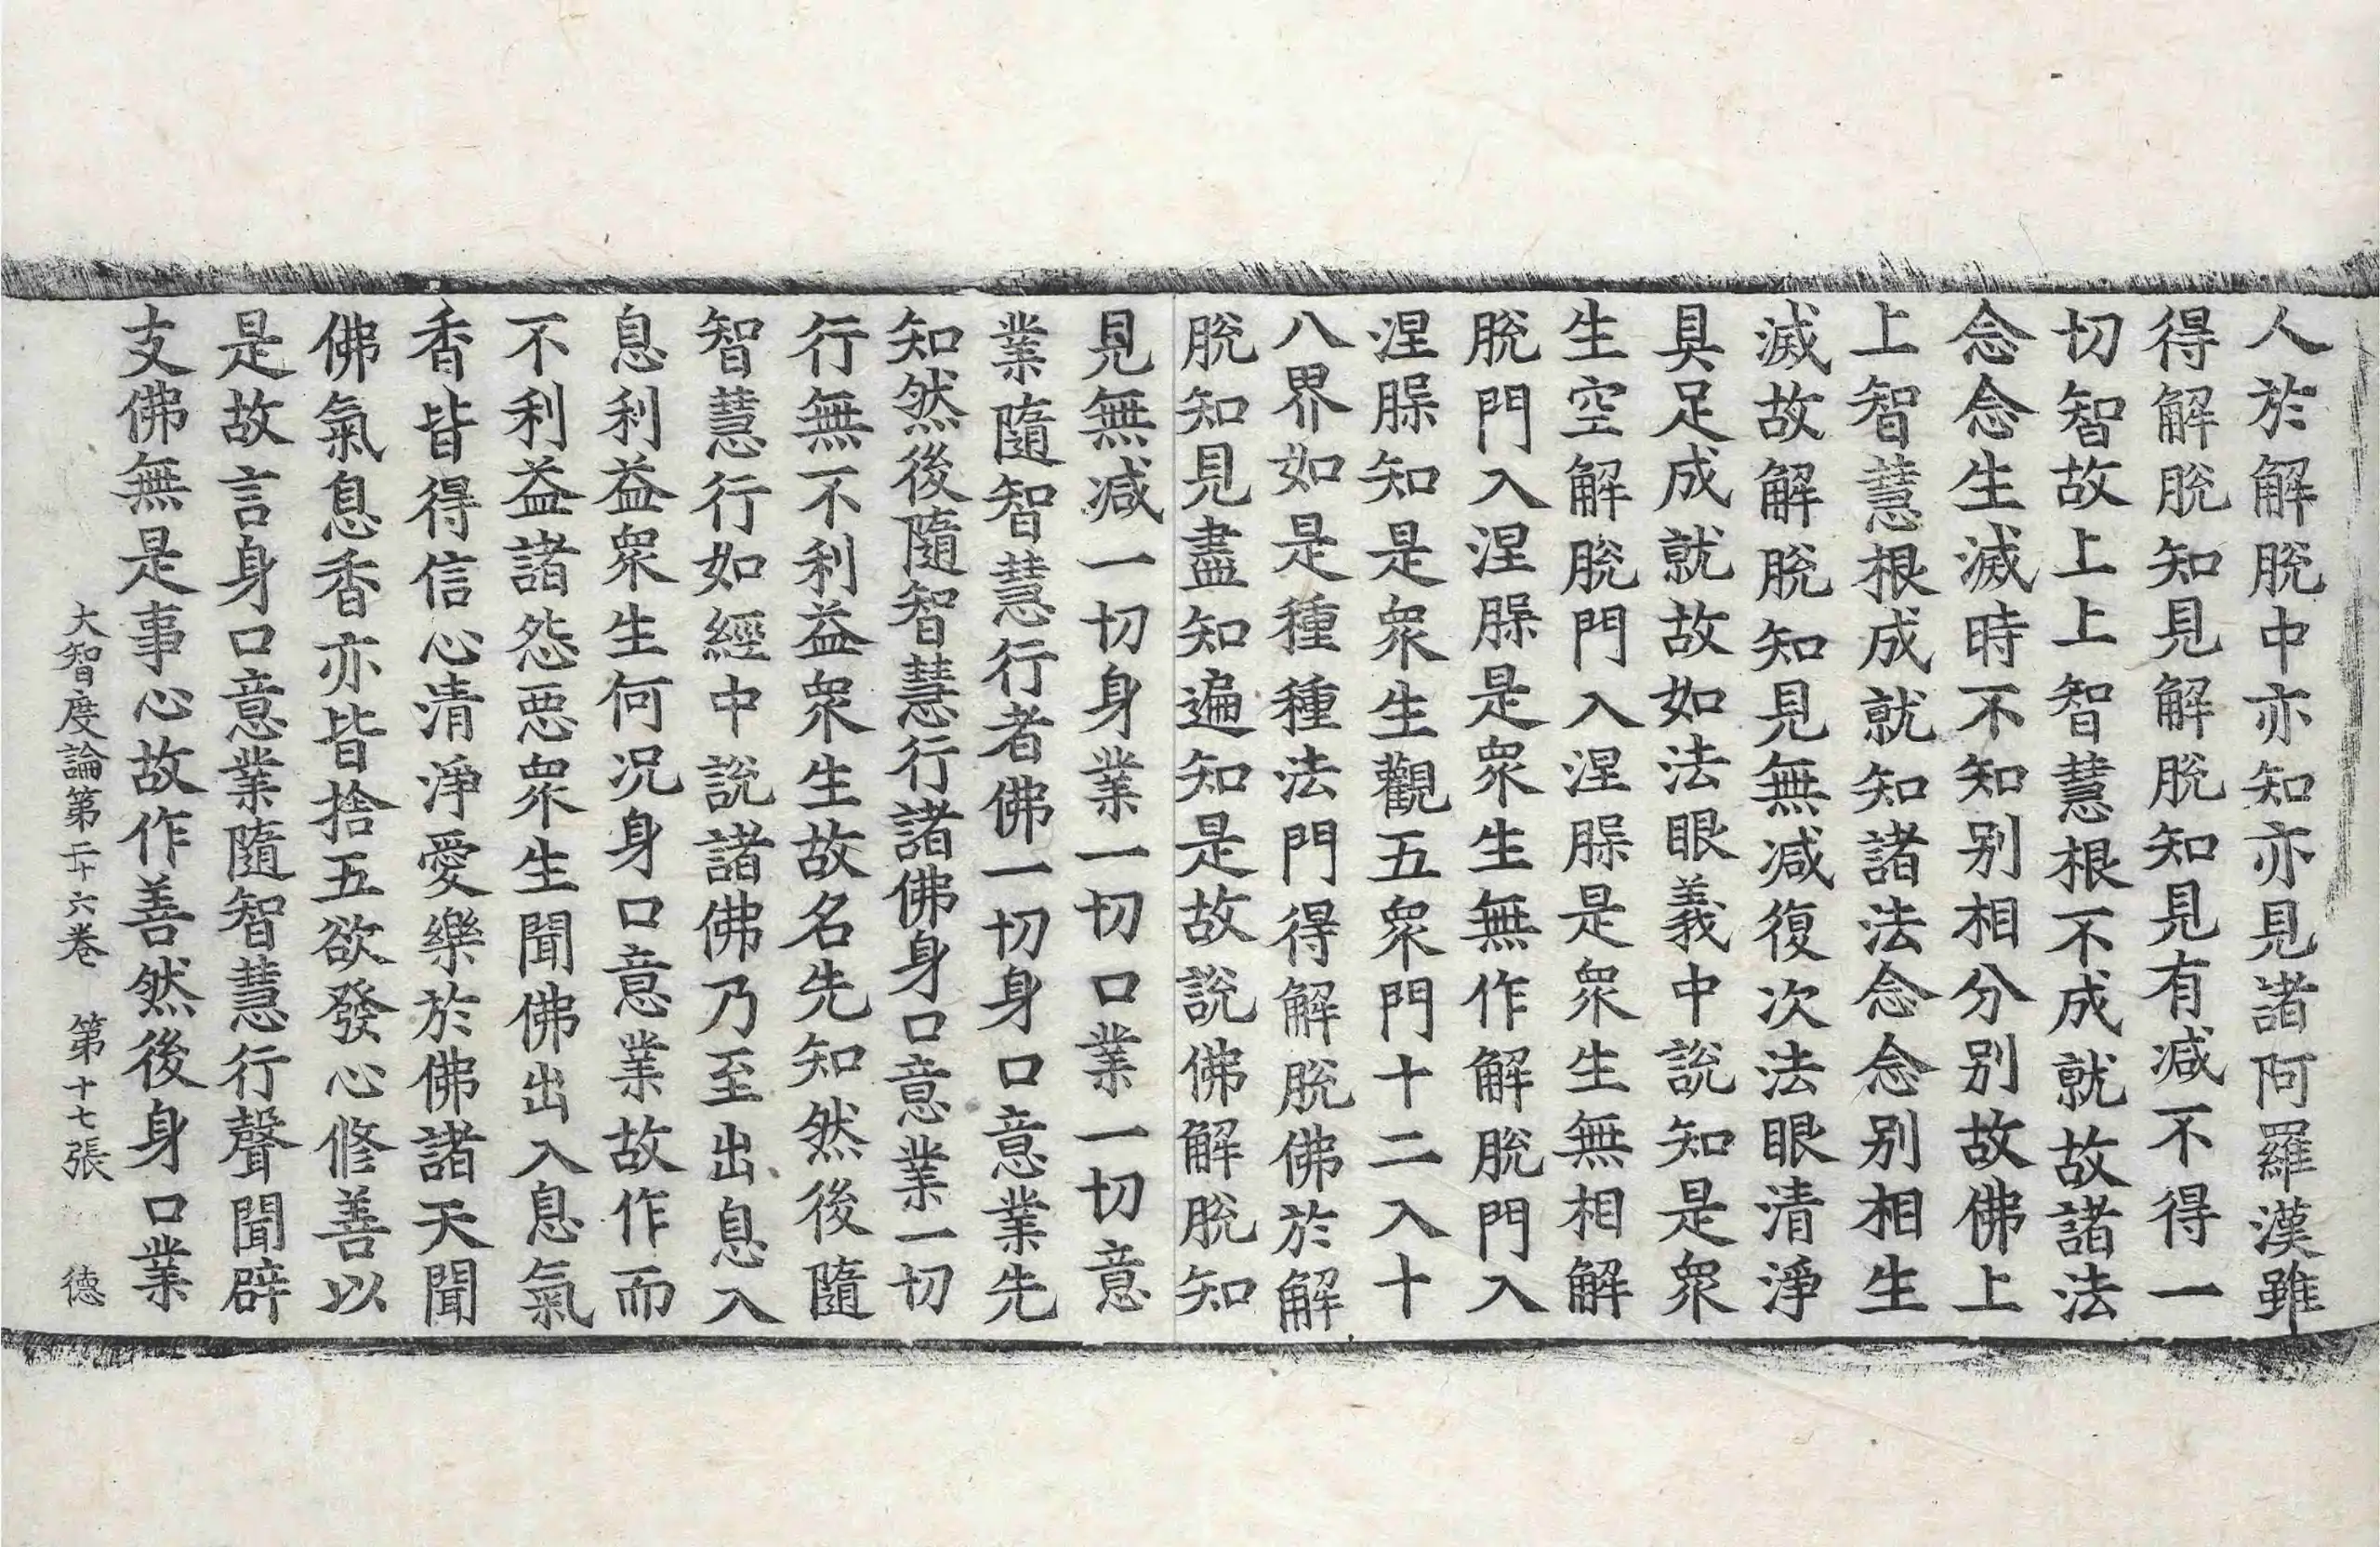 人於解脫中亦知亦見諸阿羅漢雖
得解脫知見解脫知見有减不得一
切智故上上智慧根不成就故諸法
念念生滅時不知别相分别故佛上
上智慧根成就知諸法念念别相生
滅故解脫知見無减復次法眼清淨
具足成就故如法眼義中說知是衆
生空解脫門入涅槃是衆生無相解
脫門入涅槃是衆生無作解脫門入
涅槃知是衆生觀五衆門十二入十
八界如是種種法門得解脫佛於解
脫知見盡知遍知是故說佛解脫知
見無减一切身業一切口業一切意
業隨智慧行者佛一切身口意業先
知然後隨智慧行諸佛身口意業一切
行無不利益衆生故名先知然後隨
智慧行如經中說諸佛乃至出息入
息利益衆生何况身口意業故作而
不利益諸怨惡衆生聞佛出入息氣
香皆得信心清淨愛樂於佛諸天聞
佛氣息香亦皆捨五欲發心修善以
是故言身口意業隨智慧行聲聞辟
支佛無是事心故作善然後身口業
大智度論第二十六卷 第十七張 德